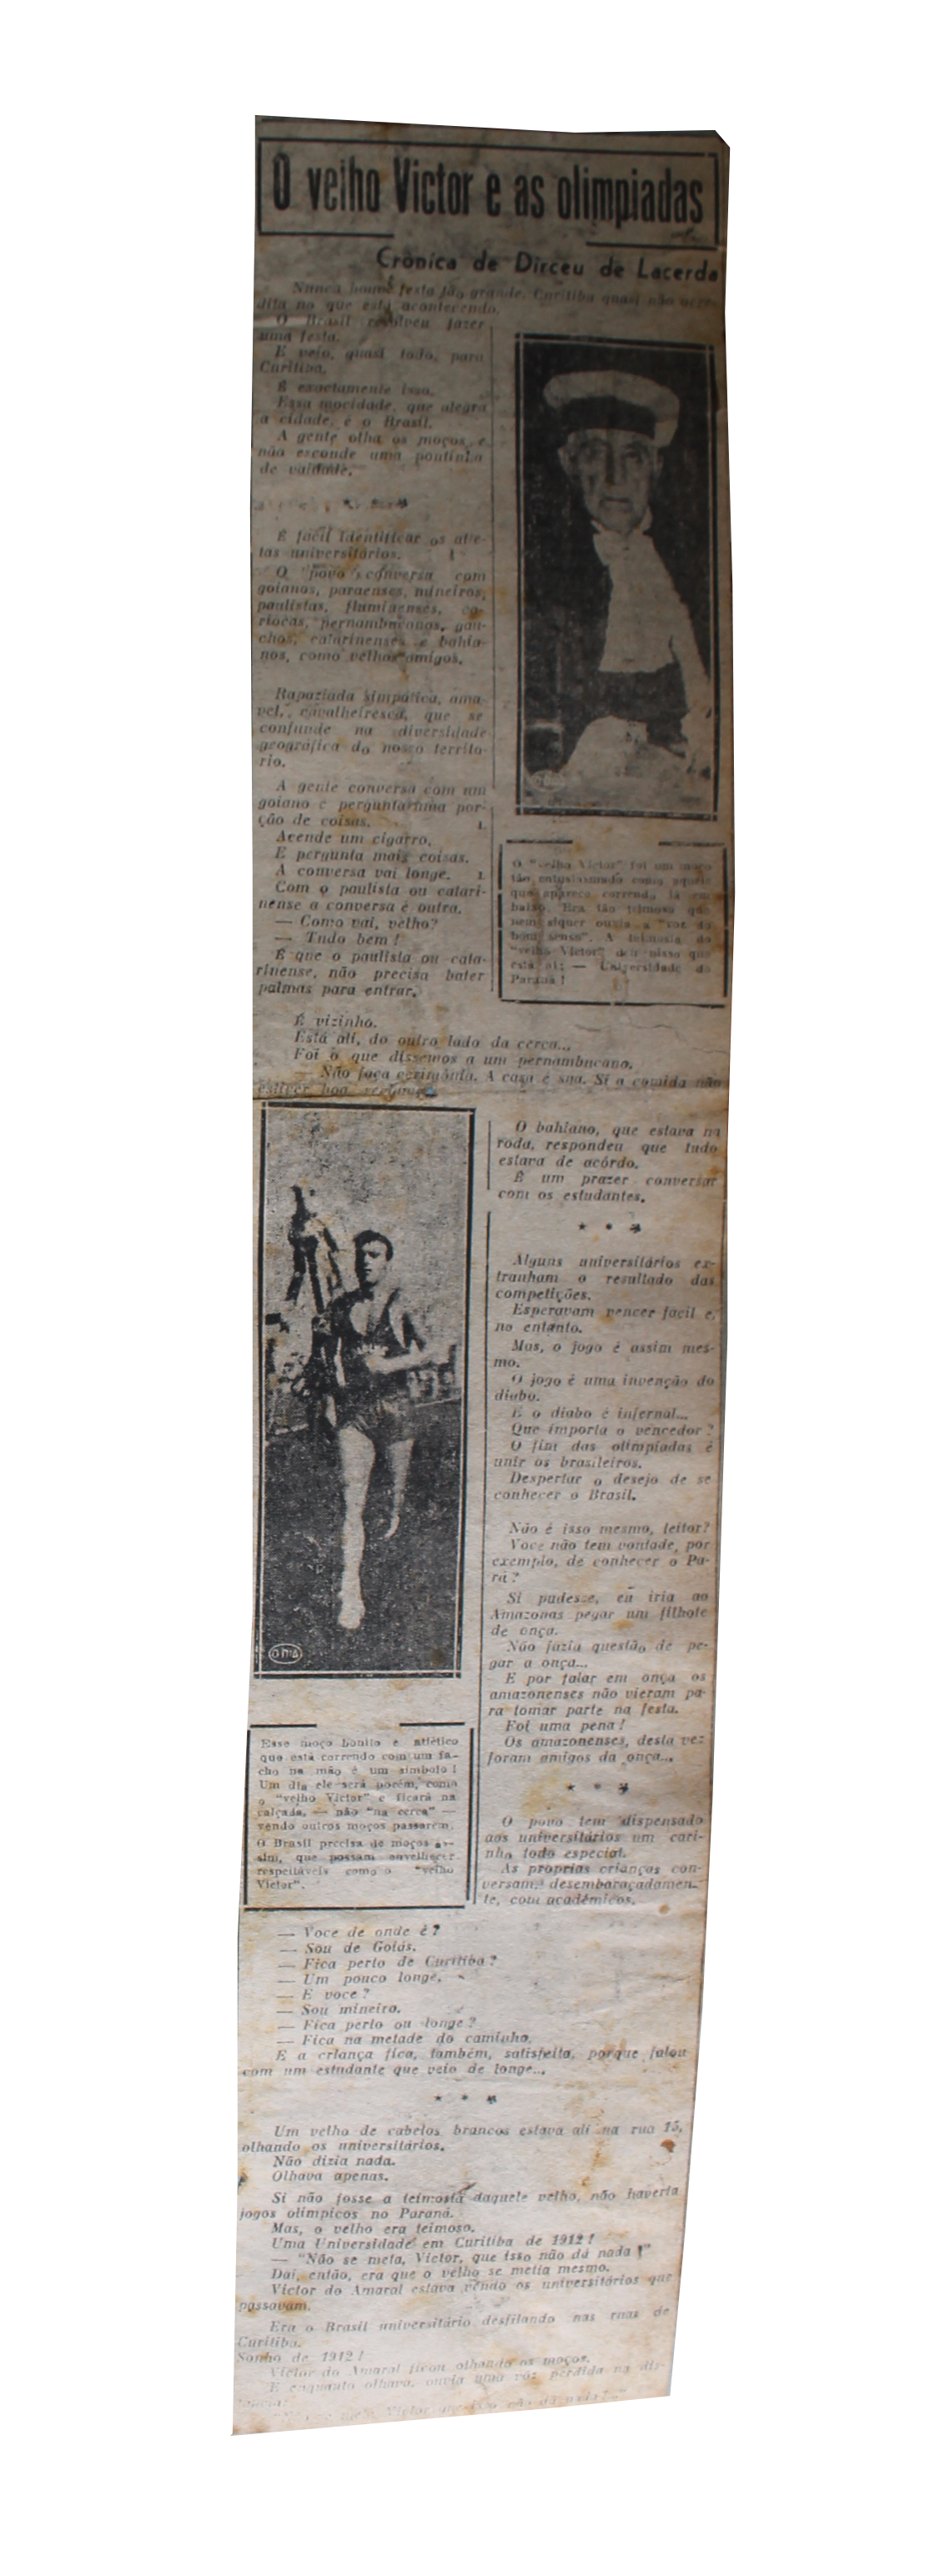 O velho Victor e as olimpiadas
Crônica de Dirceu de Lacerda
Nunca houve festa tão grande. Curitiba quasi não acre-
dita no que está acontecendo.
O Brasil resolveu fazer
uma festa.
E veio, quasi todo, para
Curitiba.
É exactamente isso.
Essa mocidade, que alegra
a cidade, é o Brasil.
A gente olha os moços e
não esconde uma pontinha
de vaidade.
* * *
É facil identificar os atle-
tas universitários.
O povo conversa com
goianos, paraenses, mineiros,
paulistas, fluminenses, ca-
riocas, pernambucanos, gau-
chos, catarinenses e bahia-
nos, como velhos amigos.
Rapaziada simpatica, ama-
vel, cavalheiresca, que se
confunde na diversidade
geográfica do nosso territo-
rio.
A gente conversa com um
goiano e pergunta uma por-
ção de coisas.
Acende um cigarro,
E pergunta mais coisas.
A conversa vai longe.
Com o paulista ou catari-
nense a conversa é outra.
— Como vai, velho?
— Tudo bem!
É que o paulista ou cata-
rinense, não precisa bater
palmas para entrar.
O "velho Victor" foi um moço
tão entusiasmado como aquele
que aparece correndo lá em
baixo. Era tão teimoso que
nem siquer ouvia a "voz do
bom senso". A teimosia do
"velho Victor" deu nisso que
está ai: — Universidade do
Paraná!
É vizinho.
Está ali, do outro lado da cerca...
Foi o que dissemos a um pernambucano.
Não faça cerimônia. A casa é sua. Si a comida não
estiver boa,
O bahiano, que estava na
roda, respondeu que tudo
estava de acórdo.
É um prazer conversar
com os estudantes.
* * *
Alguns universitários es-
tranham o resultado das
competições.
Esperavam vencer facil e,
no entanto.
Mas, o jogo é assim mes-
mo.
O jogo é uma invenção do
diabo.
E o diabo é infernal...
Que importa o vencedor?
O fim das olimpiadas é
unir os brasileiros.
Despertar o desejo de se
conhecer o Brasil.
Não é isso mesmo, leitor?
Voce não tem vontade, por
exemplo, de conhecer o Pa-
rá?
Si pudesse, eu iria ao
Amazonas pegar um filhote
de onça.
Não fazia questão de pe-
gar a onça...
E por falar em onça os
amazonenses não vieram pa-
ra tomar parte na festa.
Foi uma pena!
Os amazonenses, desta vez
foram amigos da onça...
* * *
O povo tem dispensado
aos universitários um cari-
nho todo especial.
As proprias crianças con-
versam, desembaraçadamen-
te, com acadêmicos.
O DIA
Esse moço bonito e atlético
que está correndo com um fa-
cho na mão é um simbolo!
Um dia ele será porém, como
o "velho Victor" e ficará na
calçada, — não "na cerca" —
vendo outros moços passarem.
O Brasil precisa de moços as-
sim, que possam envelhecer
respeitáveis como o "velho
Victor".
— Voce de onde é?
— Sou de Goiás.
— Fica perto de Curitiba?
— Um pouco longe.
— E voce?
— Sou mineiro.
— Fica perto ou longe?
— Fica na metade do caminho.
E a criança fica, também, satisfeita, porque falou
com um estudante que veio de longe...
* * *
Um velho de cabelos brancos estava ali na rua 15,
olhando os universitários.
Não dizia nada.
Olhava apenas.
Si não fosse a teimosia daquele velho, não haveria
jogos olimpicos no Paraná.
Mas, o velho era teimoso.
Uma Universidade em Curitiba de 1912!
— "Não se meta, Victor, que isso não dá nada!"
Dai, então, era que o velho se metia mesmo.
Victor do Amaral estava vendo os universitários que
passavam.
Era o Brasil universitário desfilando nas ruas de
Curitiba.
Sonho de 1912!
Victor do Amaral ficou olhando os moços.
E enquanto olhava, ouvia uma voz perdida na dis-
Victor, que isso não dá nada